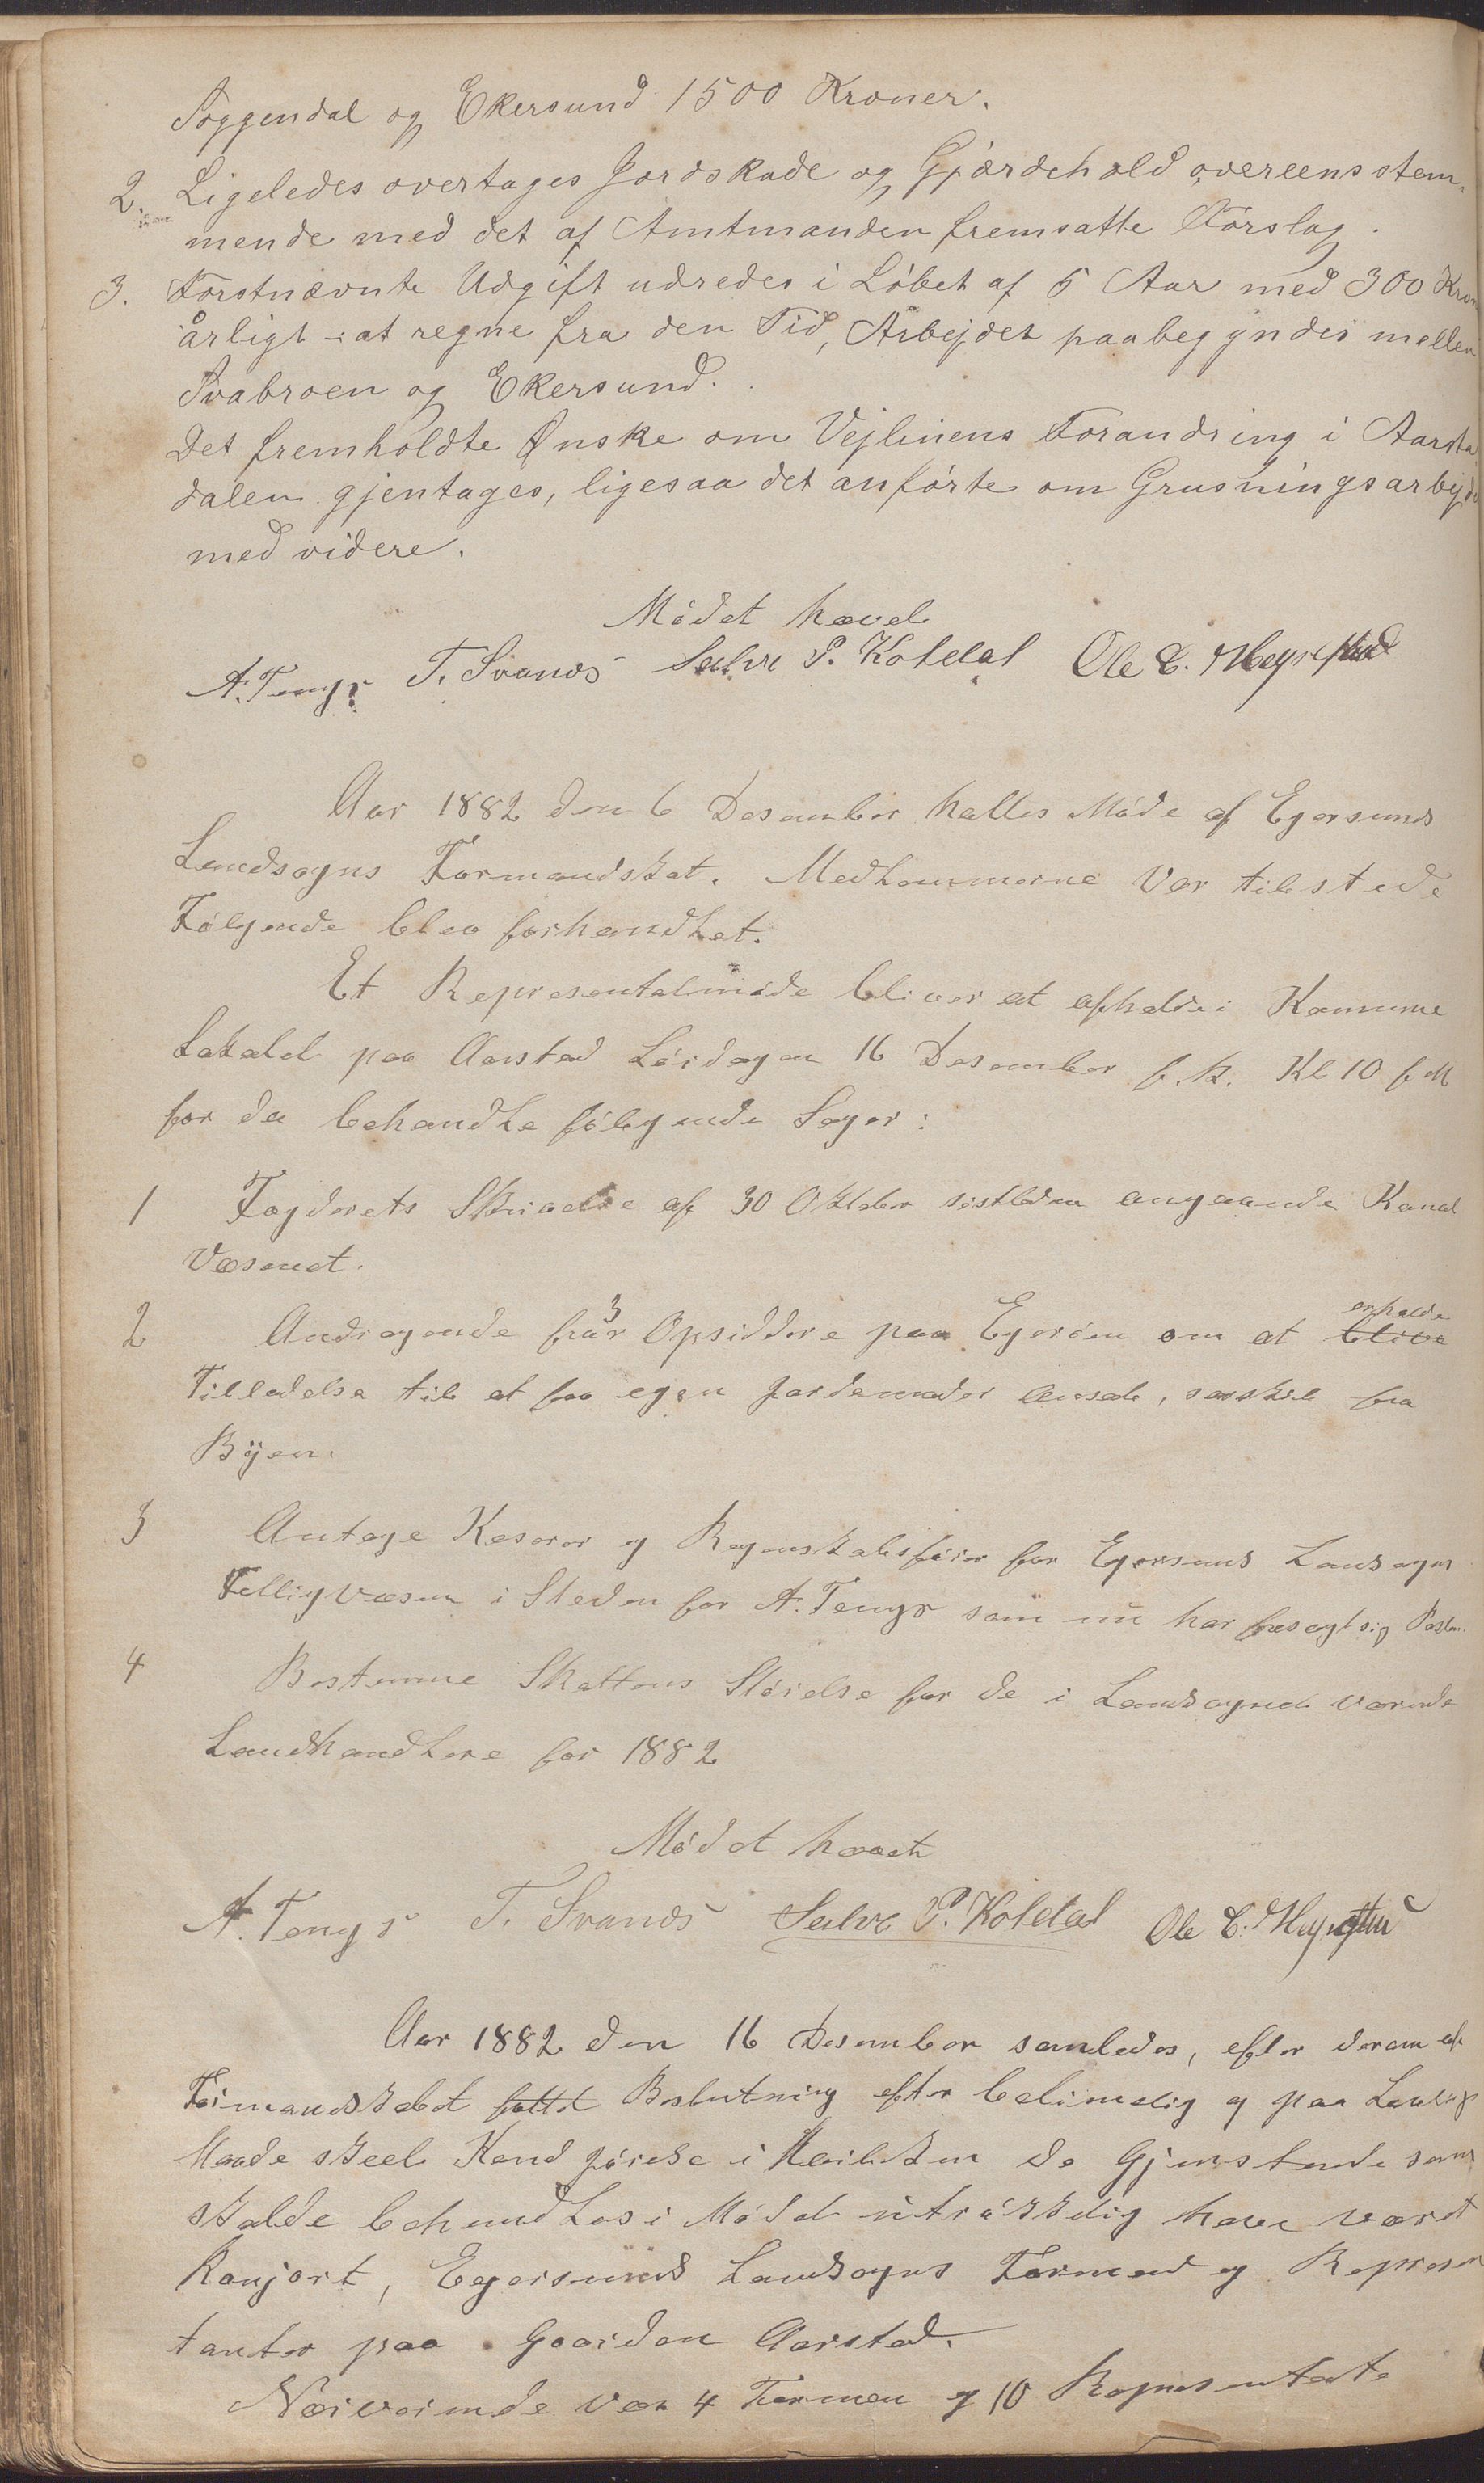 Soggendal og Ekersund 1500 Kroner.
2. Ligeledes overtages Jordskade og Gjærdehold overeensstem-
mende med det af Amtmanden fremsatte Forslag.
3. Förstnævnte Udgift udredes i Löbet af 5 Aar med 300 Kron
årligt at regne fra den Tid, Arbejdet paabegyndes mellem
Svabroen og Ekersund.
Det fremholdte Ønske om Vejlinens Forandring i Aarsta
dalen gjentages, ligesaa det anförte om Grusningsarbejde
med videre.
Mödet hævet
A. Tengs T. Svanes Salve P. Koldal Ole C.
Aar 1882 den 6 Desember holtes Möde af Egersunds
Landsogns Formandskab. Medlemmerne Var tilstede
Fölgende blev forhandlet.
Et Representatmöde bliver at afholde i Kommune
Lokalet paa Aarstad Lördagen 16 Desember f. k. Kl 10 f M
for da behandle fölgende Sager:
1 Fogderets Skrivelse af 30 Oktober sistleden angaaende Kanal
Væsenet.
2 Andragende fra 3 Opsiddere paa Egeröen om at blive erholde
Tilladelse til at faa egen Jordemoder Ansat, særskilt fra
Byen.
3 Antage Keserer og Regenskabsförer for Egersunds Landsogns
Fattigvæsen i Steden for A. Tengs som nu har frasagt sig Posten.
4 Bestemme Skattens Störelse for de i Landsognet værende
Landhandlere for 1882
Mödet hævet
A. Tengs T. Svanes Salve P. Koldal Ole C.
Aar 1882 den 16 Desember samledes, efter derom af
Formandskabet fattet Beslutning efter betimelig og paa Lovlig
Maade skeet Kundgjörelse i Kirken de Gjenstande som
skulde behandles i Mödet utrökkelig have været
Konjort, Egersunds Landsogns Formend og Represen
tanter paa Gaarden Aarstad.
Nærværende var 4 Formen og 10 Representante